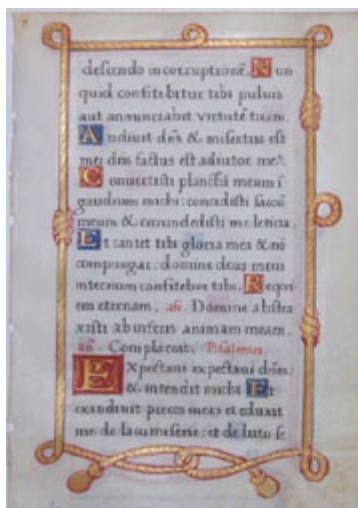 descendo in corruptionē. Nun
quid confitebitur tibi puluis
aut annunciabit veritatē tuam.
Audiuit dn̄s & misertus est
mei dn̄s factus est adiutor me⁹.
Conuertisti planctū meum ī
gaudium michi: concidisti saccū
meum & circundedisti me leticia.
Et cantet tibi gloria mea & nō
compungar: domine deus meus
in eternum confitebor tibi. Requi
em eternam. an̄. Domine abstra
xisti ab inferis animam meam.
an̄. Complaceat. Psalmus.
Expectans expectaui dn̄m:
& intendit michi Et
exaudiuit preces meas et eduxit
me de lacu miserie: et de luto fe